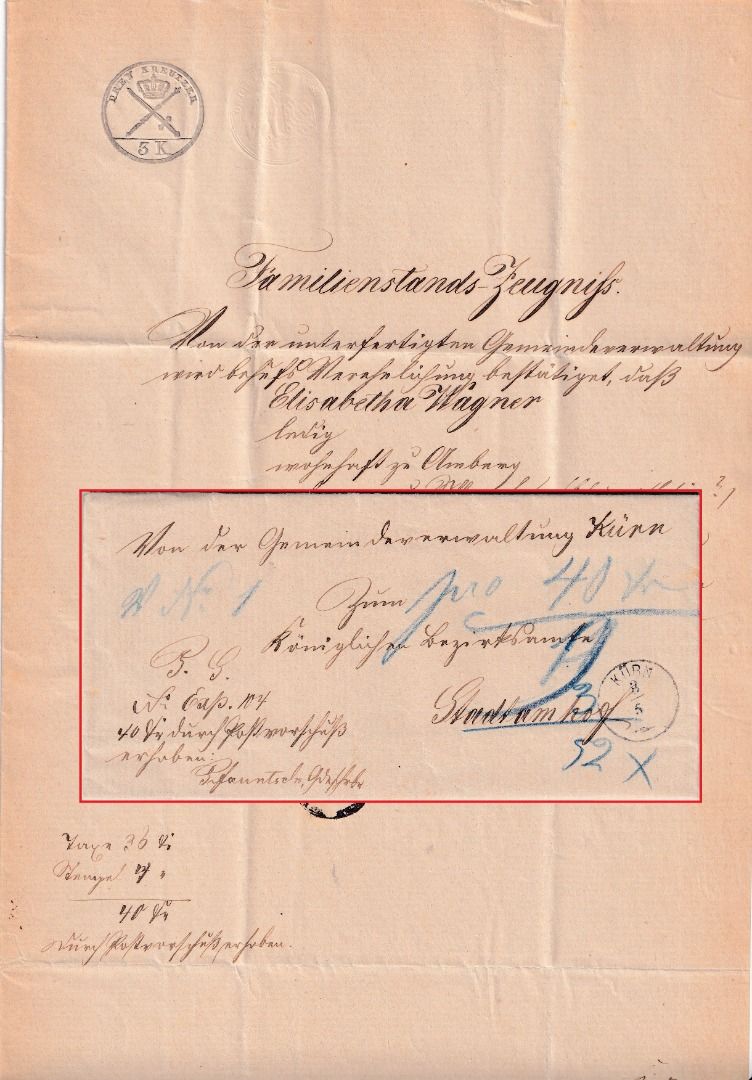 DREY KREUTZER
3 K
Familienstands-Zeugniß.
Von der unterfertigten Gemeindeverwaltung
wird behufs Verehelichung bestätiget, daß
Elisabetha Wagner
ledig
wohnhaft zu Amberg
Von der Gemeindeverwaltung Kürn
V Nr. 1
pro 40 Kr
Zum
Königlichen Bezirksamte
Stadtamhof
KÜRN
8
5
P. S.
Nr. Exp. 104
40 Kr durch Postvorschuß
erhoben.
52 X
Taxe 36 Kr
Stempel 4 "
40 Kr
Durch Postvorschuß erhoben.